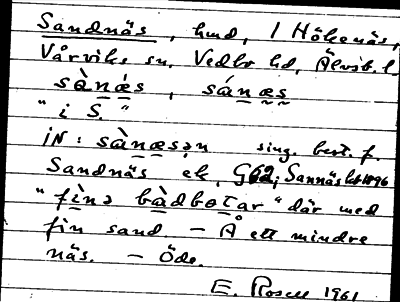 Sandnäs, hmd, / Hökenäs,
Vårviks sn, Vedbo hd, Älvsb. l.
sànæ̀s, sánæs
" i S. "
iN: sànæsən sing. best. f.
Sandnäs ek, G62; Sannäs kt 1896
"fìnə bàdbotar" där med
fin sand. - Å ett mindre
näs. - Öde.
E. Rosell 1961